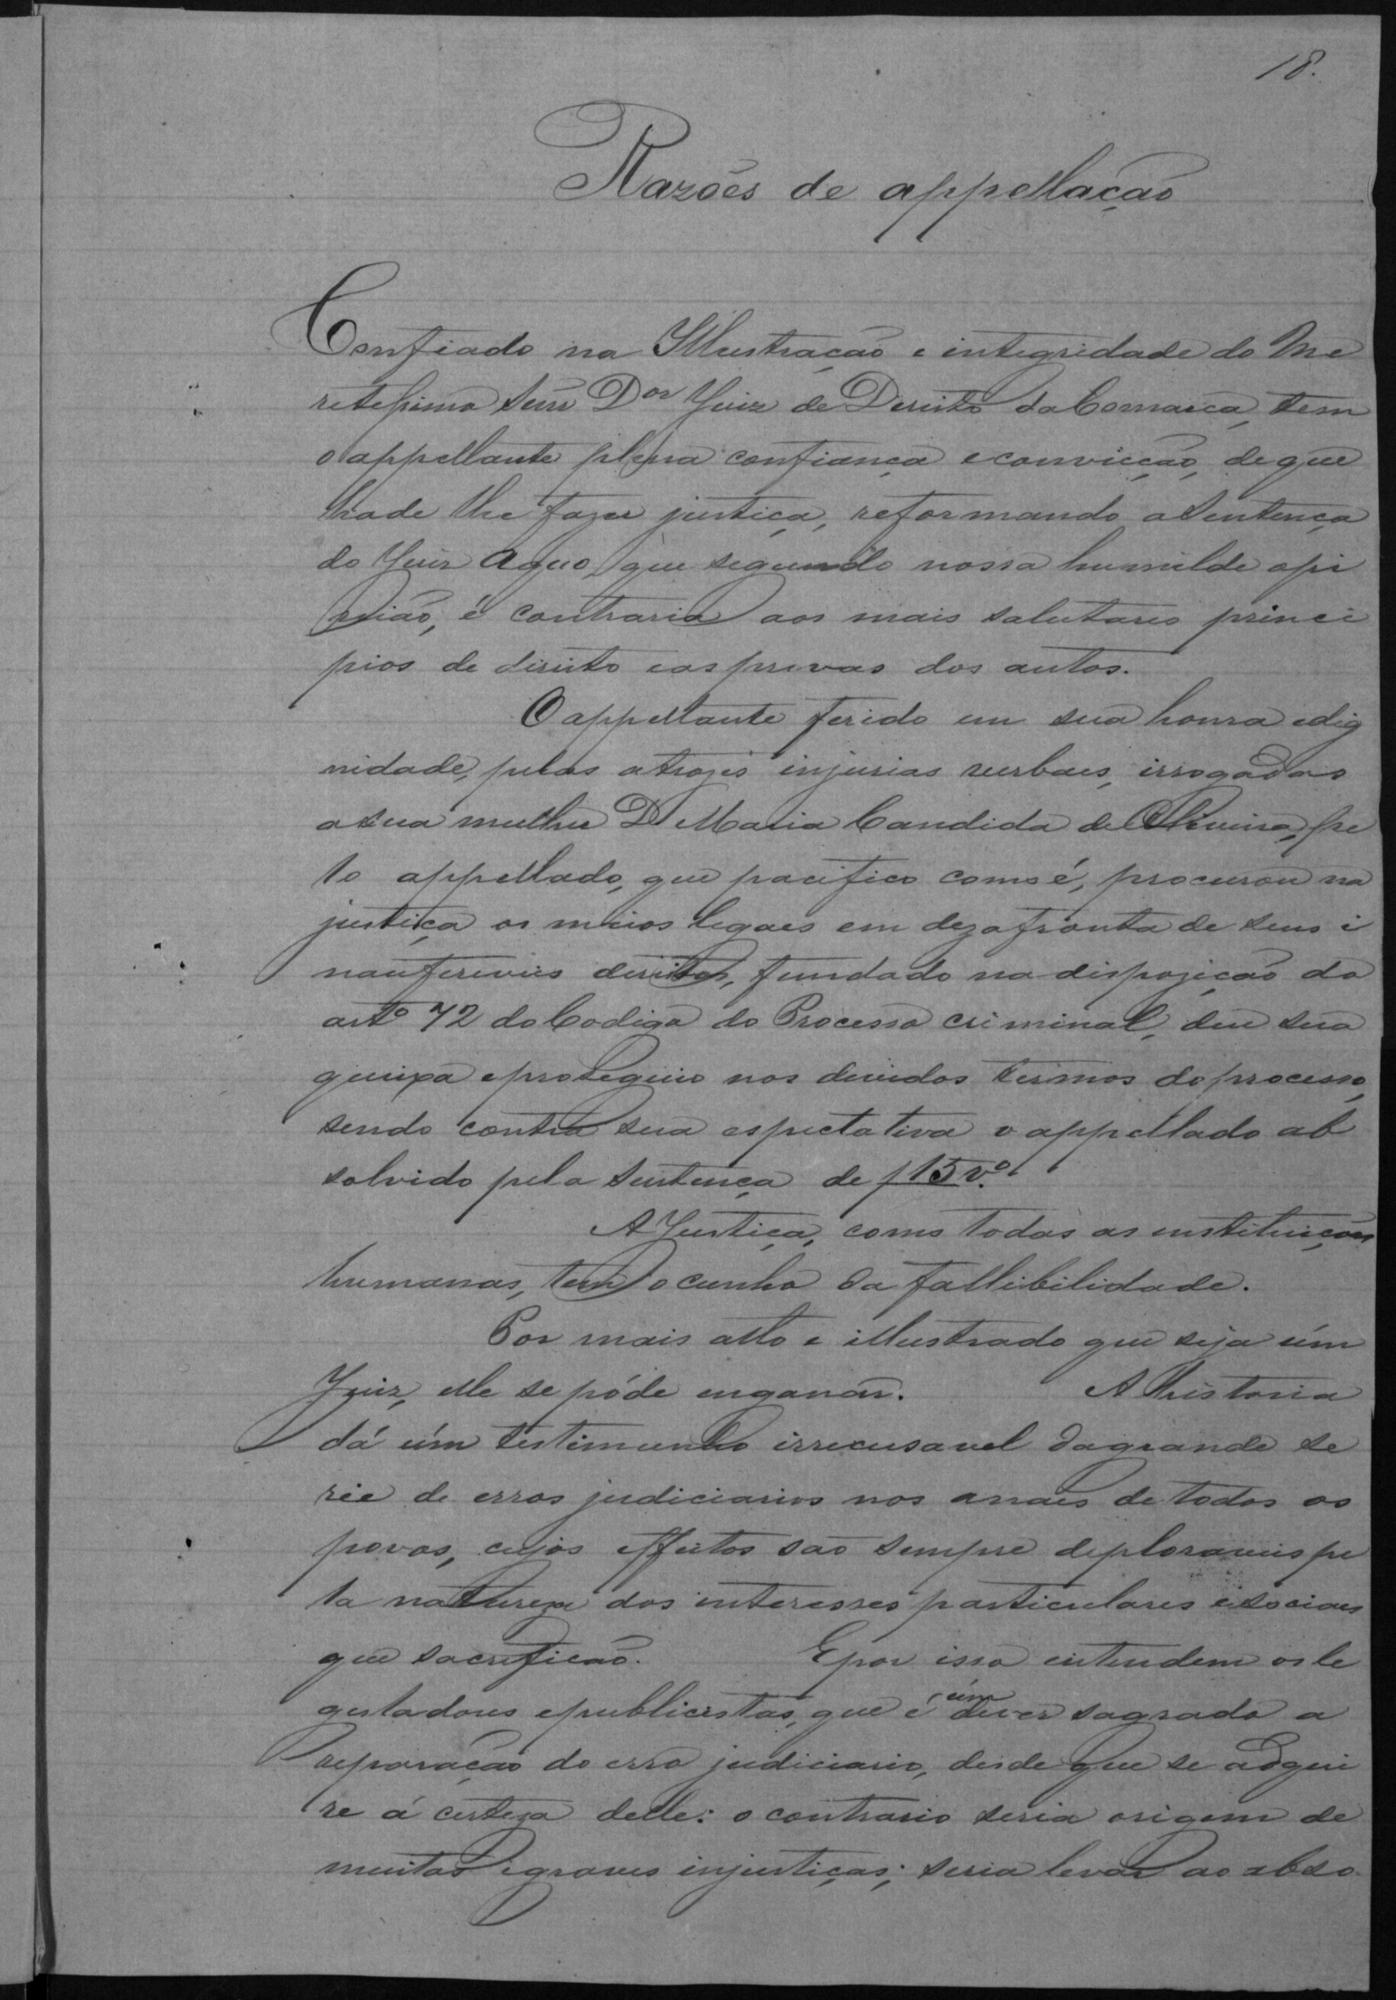 18.
Razões de appellação
Confiado na Illustração e integridade do Me
retessimo Senr Dor Juiz de Dereito da Comarca, tem
o appellante plena confiança e convicção, de que
hade lhe fazer justiça, reformando a Sentença
do Juiz Aquo, que segundo nossa humilde opi
nião, é contraria aos mais salutares princi
pios de direito e as provas dos autos.
O appellante ferido em sua honra e dig
nidade, pelas atrozes injurias verbaes, irrogadas
a sua mulher D Maria Candida de Oliveira, pe
lo appellado, que pacifico como é, procurou na
justiça os meios legaes em dezafronta de seus i
nauferiveis direitos, fundado na dispozição do
arto 72 do Codigo do Processo criminal, deu sua
queixa e prosseguio nos devidos termos do processo,
sendo contra sua espectativa o appellado ab
solvido pela Sentença de f 15 vo.
A Justiça, como todas as instituições
humanas, tem o cunho da fallibilidade.
Por mais alto e illustrado que seja úm
Juiz, elle se póde enganar. A historia
dá úm testimunho irrecusavel da grande se
rie de erros judiciarios nos anaes de todos os
povos, cujos effeitos são sempre deploraveis pe
la natureza dos interesses particulares e sociaes
que sacrificão. E por isso entendem os le
gisladores e publicistas, que é úm dever sagrado a
reparação do erro judiciario, desde que se adqui
re á certeza delle: o contrario seria origem de
muitas e graves injustiças; seria levar ao abso